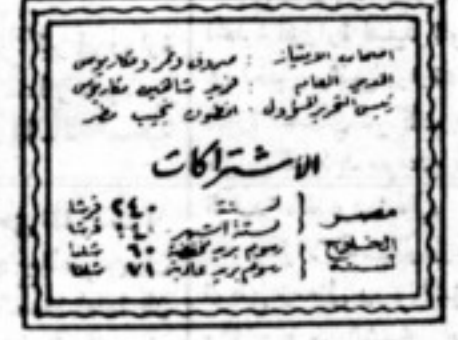 اصحاب الامتياز : صروف ونمر ومكاريوس
المدير العام : فريد شاهين مكاريوس
رئيس التحرير المسؤول : انطون نجيب مطر
الاشتراكات
مصر لسنة ٢٤٠ قرشا
لستة اشهر قرشا
الخليج رسوم بريد ٦٠ شلنا
لسنة رسوم بريد ٧١ شلنا